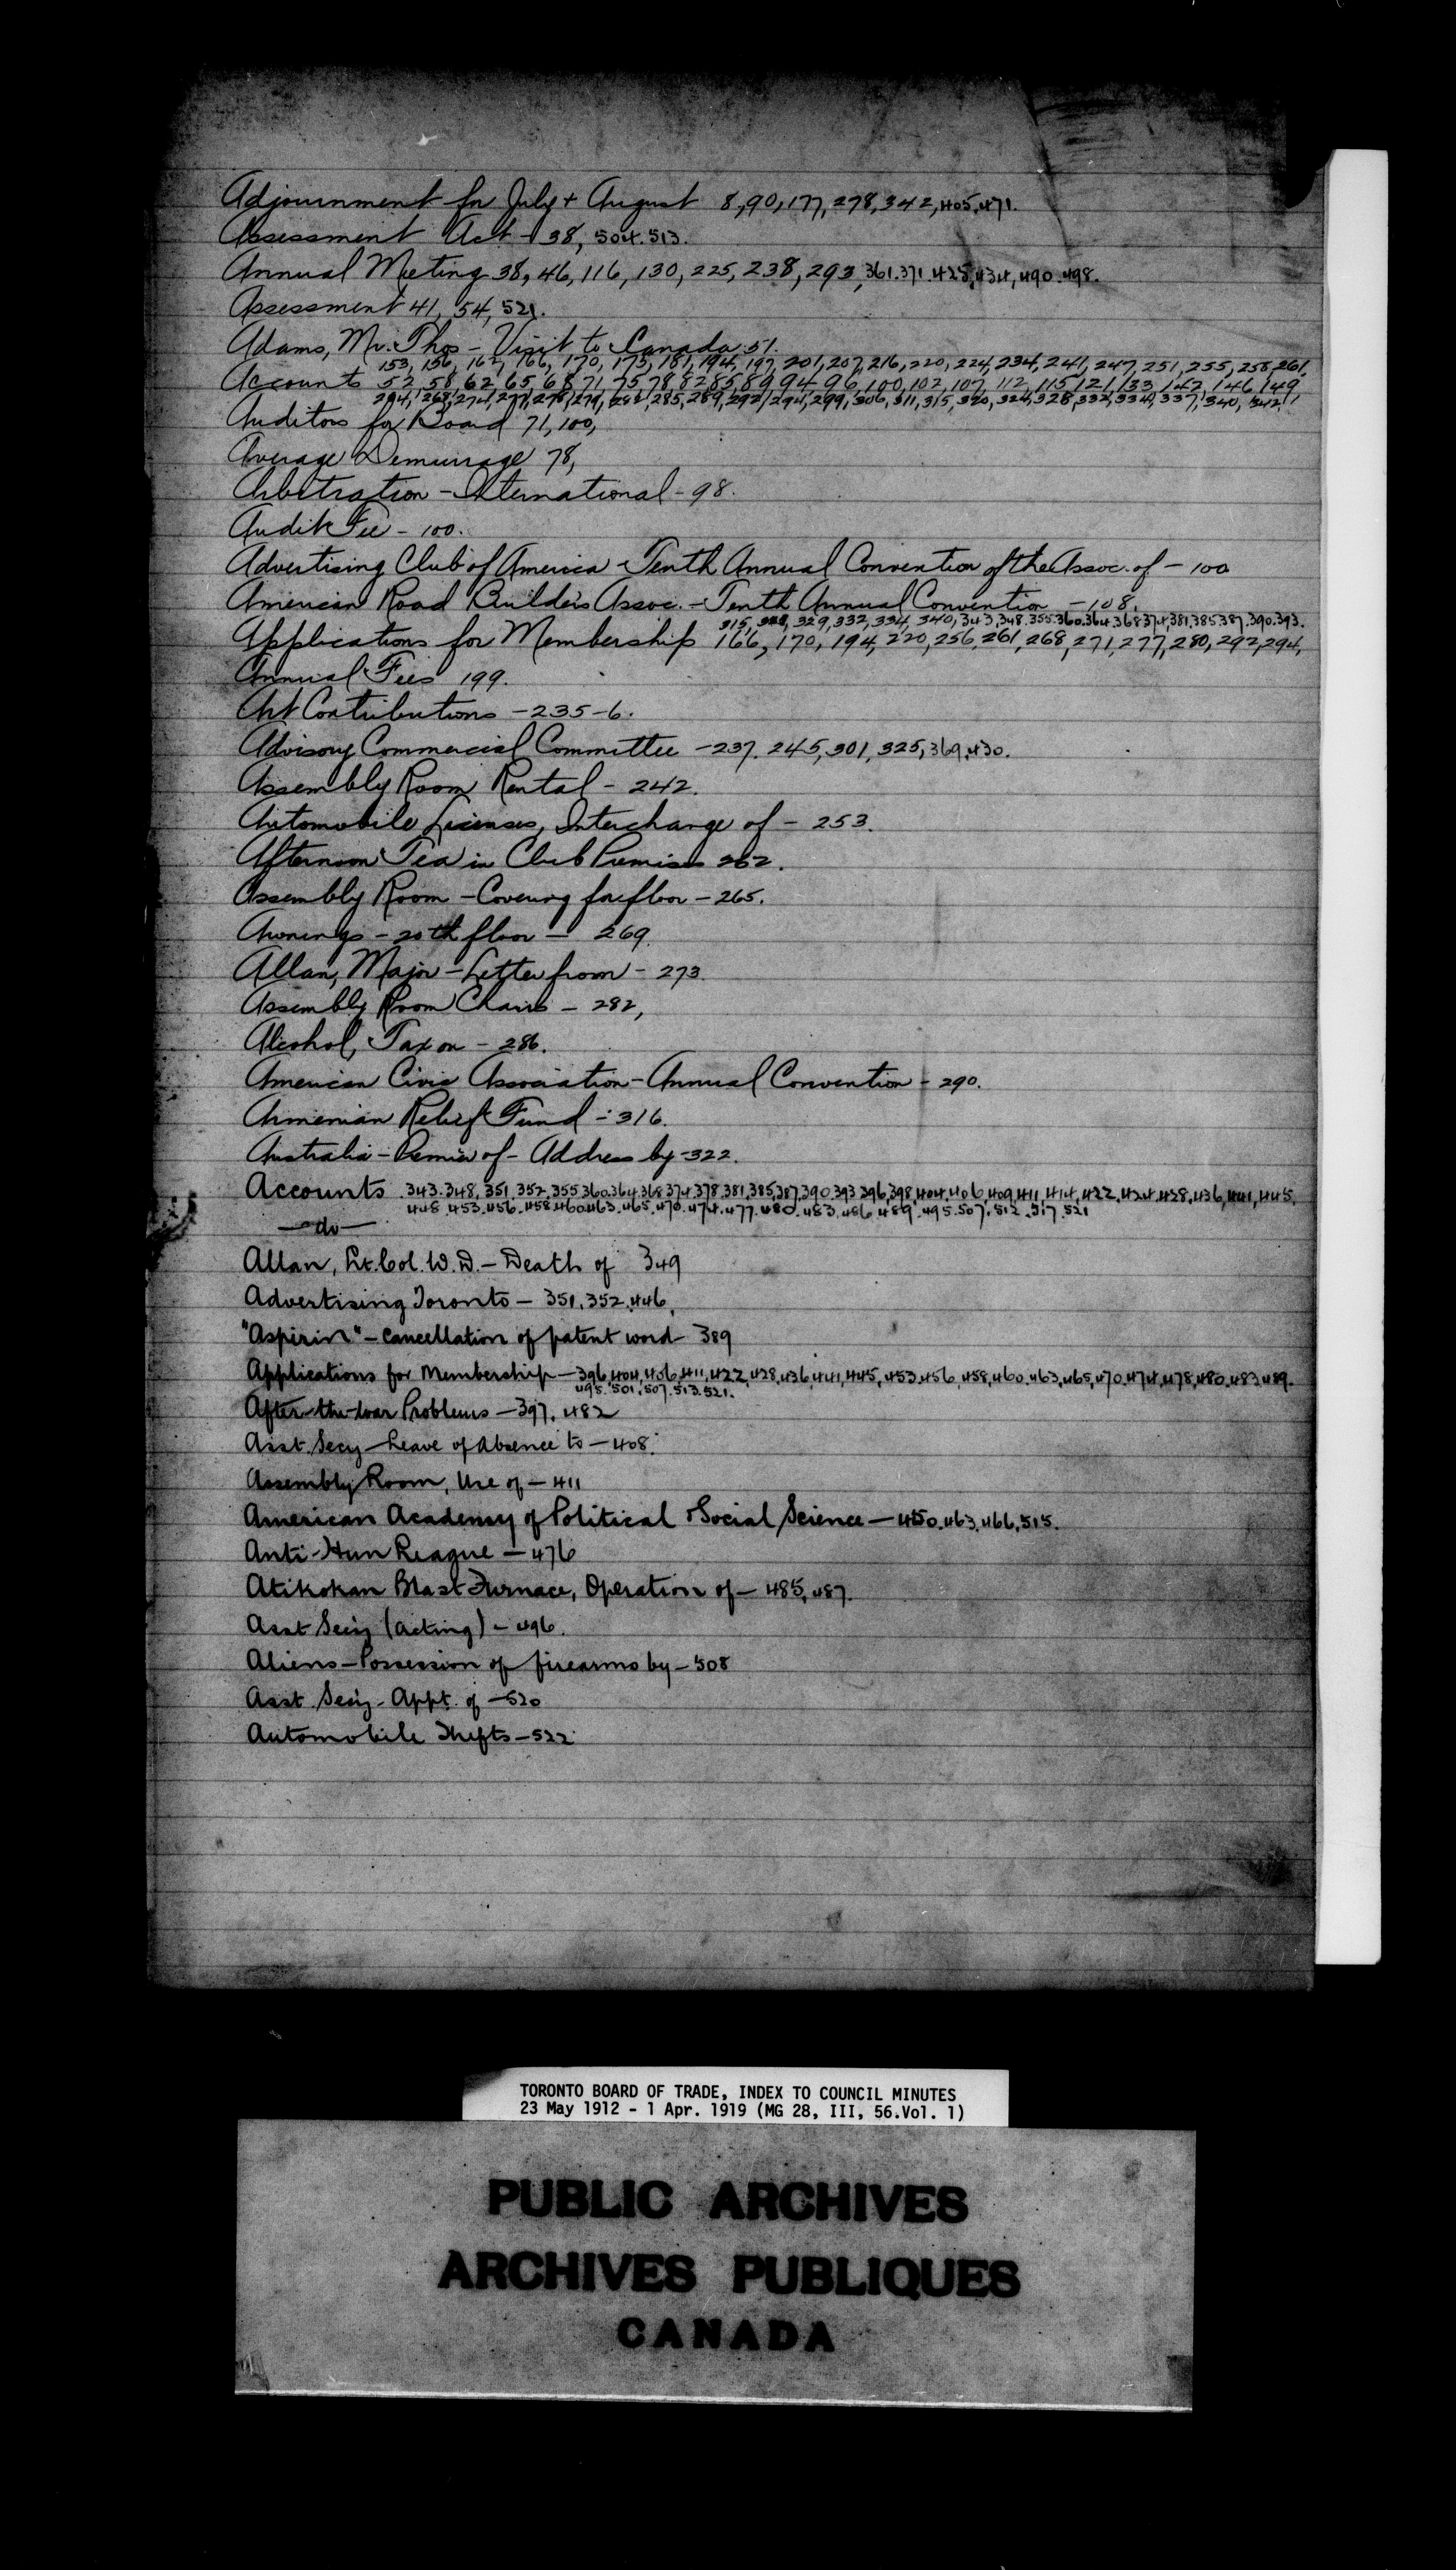 Adjournment for July + August 8, 90, 177, 278, 342, 405, 471.
Assessment Act - 38, 504. 513.
Annual Meeting 38, 46, 116, 130, 225, 238, 293, 361. 371. 428, 434, 490. 498.
Assessment 41, 54, 521.
Adams, Mr. Thos - Visit to Canada 51.
153, 156, 162, 166, 170, 175, 181, 194, 197, 201, 207, 216, 220, 224, 234, 241, 247, 251, 255, 258, 261,
Accounts 52, 58, 62, 65, 68, 71, 75, 78, 82, 85, 89, 94, 96, 100, 102, 107, 112, 115, 121, 133, 142, 146, 149,
264, 268, 274, 277, 278, 279, 282, 285, 289, 292, 294, 299, 306, 311, 315, 320, 324, 328, 332, 334, 337, 340, 342,
Auditors for Board 71, 100,
Average Demurrage 78,
Arbitration - International - 98.
Audit Fee - 100.
Advertising Club of America - Tenth Annual Convention of the Assoc. of - 100
American Road Builders Assoc. - Tenth Annual Convention - 108.
315, 328, 329, 332, 334, 340, 343, 348. 355. 360. 364. 368 374, 381, 385. 387. 390. 393.
Applications for Membership 166, 170, 194, 220, 256, 261, 268, 271, 277, 280, 292, 294,
Annual Fees 199.
Art Contributions - 235-6.
Advisory Commercial Committee - 237. 245, 301, 325, 369, 430.
Assembly Room Rental - 242.
Automobile Licenses, Interchange of - 253.
Afternoon Tea in Club Premises 262.
Assembly Room - Covering for floor - 265.
Awnings - 20th floor - 269.
Allan, Major - Letter from - 273.
Assembly Room Chairs - 282,
Alcohol, Tax on - 286.
American Civic Association - Annual Convention - 290.
Armenian Relief Fund - 316.
Australia - Premier of - Address by - 322.
Accounts 343. 348, 351, 352, 355 360. 364. 368 374. 378. 381, 385, 387, 390. 393 396, 398, 404. 406, 409, 411, 414, 422. 424. 428, 436, 441, 445,
448. 453. 456. 458. 460. 463. 465. 470. 474. 477. 480. 483. 486. 489. 495. 507. 512. 517. 521
— do —
Allan, Lt. Col. W. D. - Death of 349
Advertising Toronto - 351, 352. 446.
"Aspirin" - Cancellation of patent word 389
Applications for Membership - 396, 404, 406, 411, 422, 428, 436, 441, 445, 453. 456, 458, 460. 463, 465, 470. 474, 478, 480. 483 489.
495. 501, 507. 513. 521.
After-the-war Problems - 397, 482
Asst. Secy - Leave of Absence to - 408.
Assembly Room, Use of - 411
American Academy of Political & Social Science - 450. 463. 466. 515.
Anti-Hun League - 476
Atikokan Blast Furnace, Operation of - 485, 487.
Asst Sec'y (acting) - 496.
Aliens - Possession of firearms by - 508
Asst. Sec'y - Appt. of - 520
Automobile Thefts - 522
TORONTO BOARD OF TRADE, INDEX TO COUNCIL MINUTES
23 May 1912 - 1 Apr. 1919 (MG 28, III, 56.Vol. 1)
PUBLIC ARCHIVES
ARCHIVES PUBLIQUES
CANADA